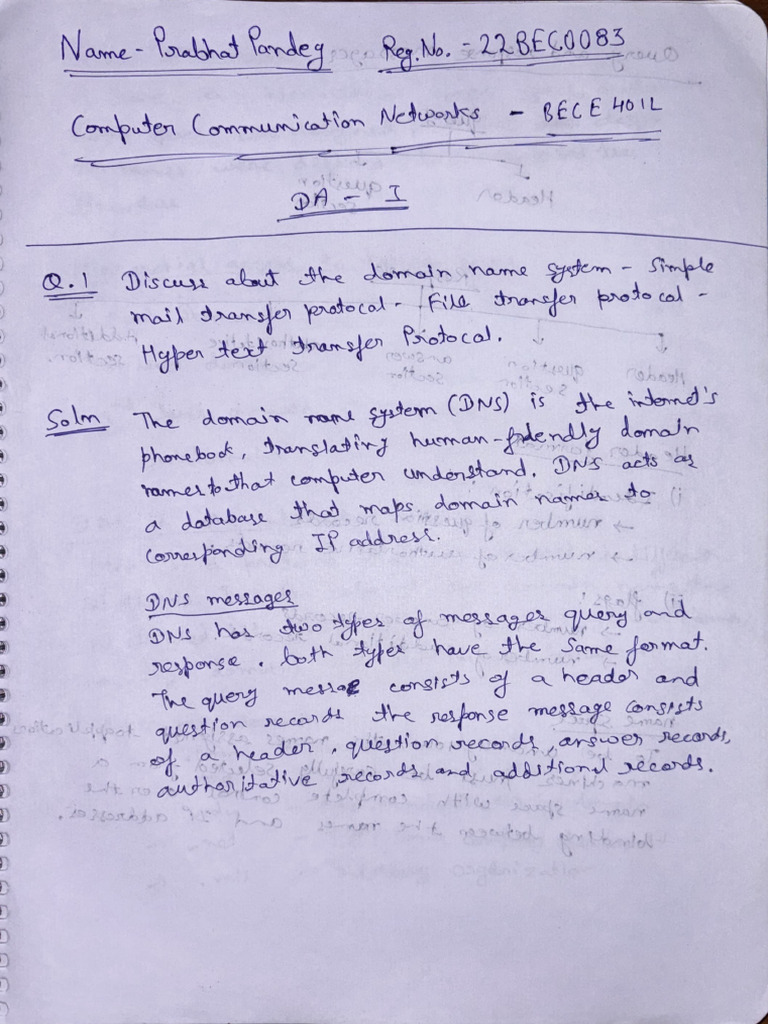 Name - Prabhat Pandey Reg. No. - 22BEC0083
Computer Communication Networks - BECE 401L
DA - I
Q.1 Discuss about the domain name system - Simple
mail transfer protocal - File transfer protocal -
Hyper text transfer Protocal.
Soln The domain name system (DNS) is the internet's
phonebook, translating human-friendly domain
names to that computer understand. DNS acts as
a database that maps domain names to
corresponding IP address.
DNS messages
DNS has two types of messages query and
response. both types have the same format.
The query message consists of a header and
question records the response message consists
of a header, question records, answer records,
authoritative records and additional records.